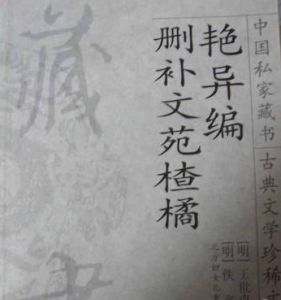 中国私家藏书
古典文学珍稀
艳异编
删补文苑楂橘
[明]王世贞
[明]佚
藏